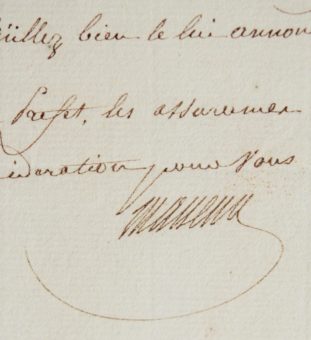 üillez bien le lui annon
Préfet, les assurances
idération pour Vous
Massena